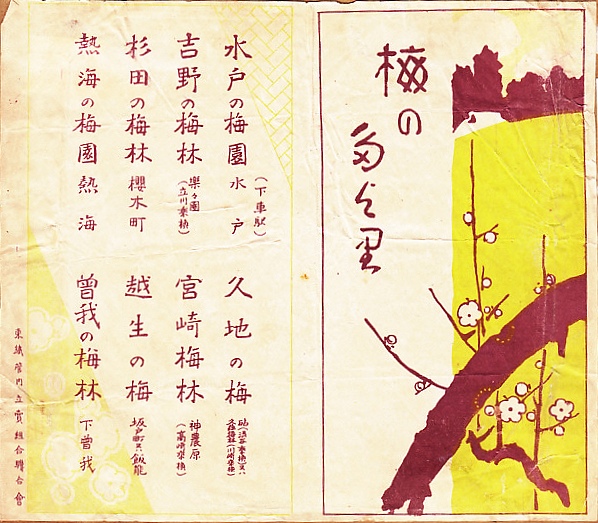 梅の
たより
(下車駅)
水戸の梅園 水戸
吉野の梅林 楽々園
(立川乗換)
杉田の梅林 櫻木町
熱海の梅園 熱海
久地の梅
宮崎梅林 神農原
(高崎乗換)
越生の梅 坂戸町又ハ飯能
曽我の梅林 下曽我
東鐵管内立賣組合聯合會